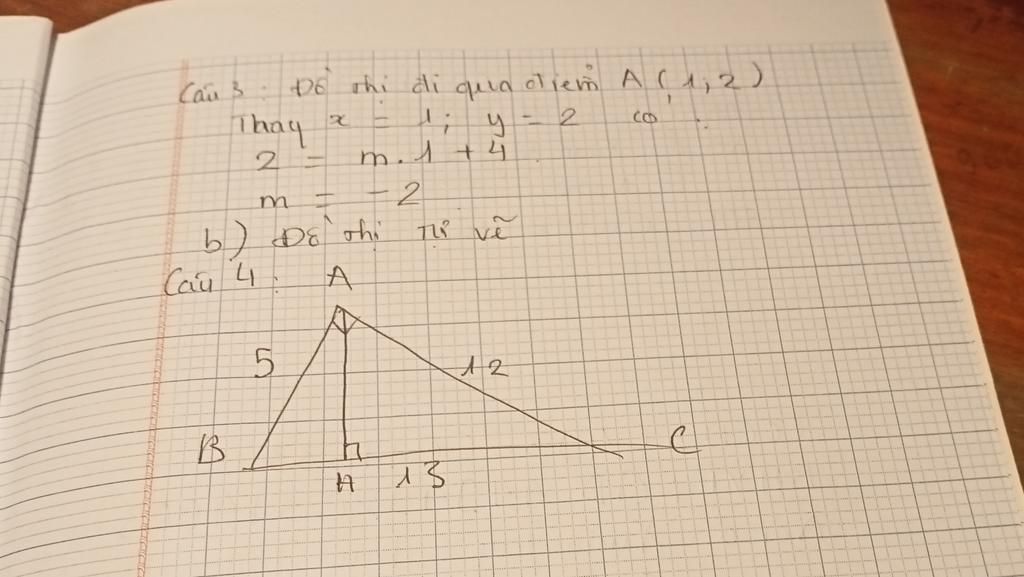 Câu 3: Đồ thị đi qua điểm A(1;2)
Thay x = 1; y = 2 có:
2 = m.1 + 4
m = -2
b) Đồ thị tự vẽ
Câu 4:
A
5
12
B
C
H
13